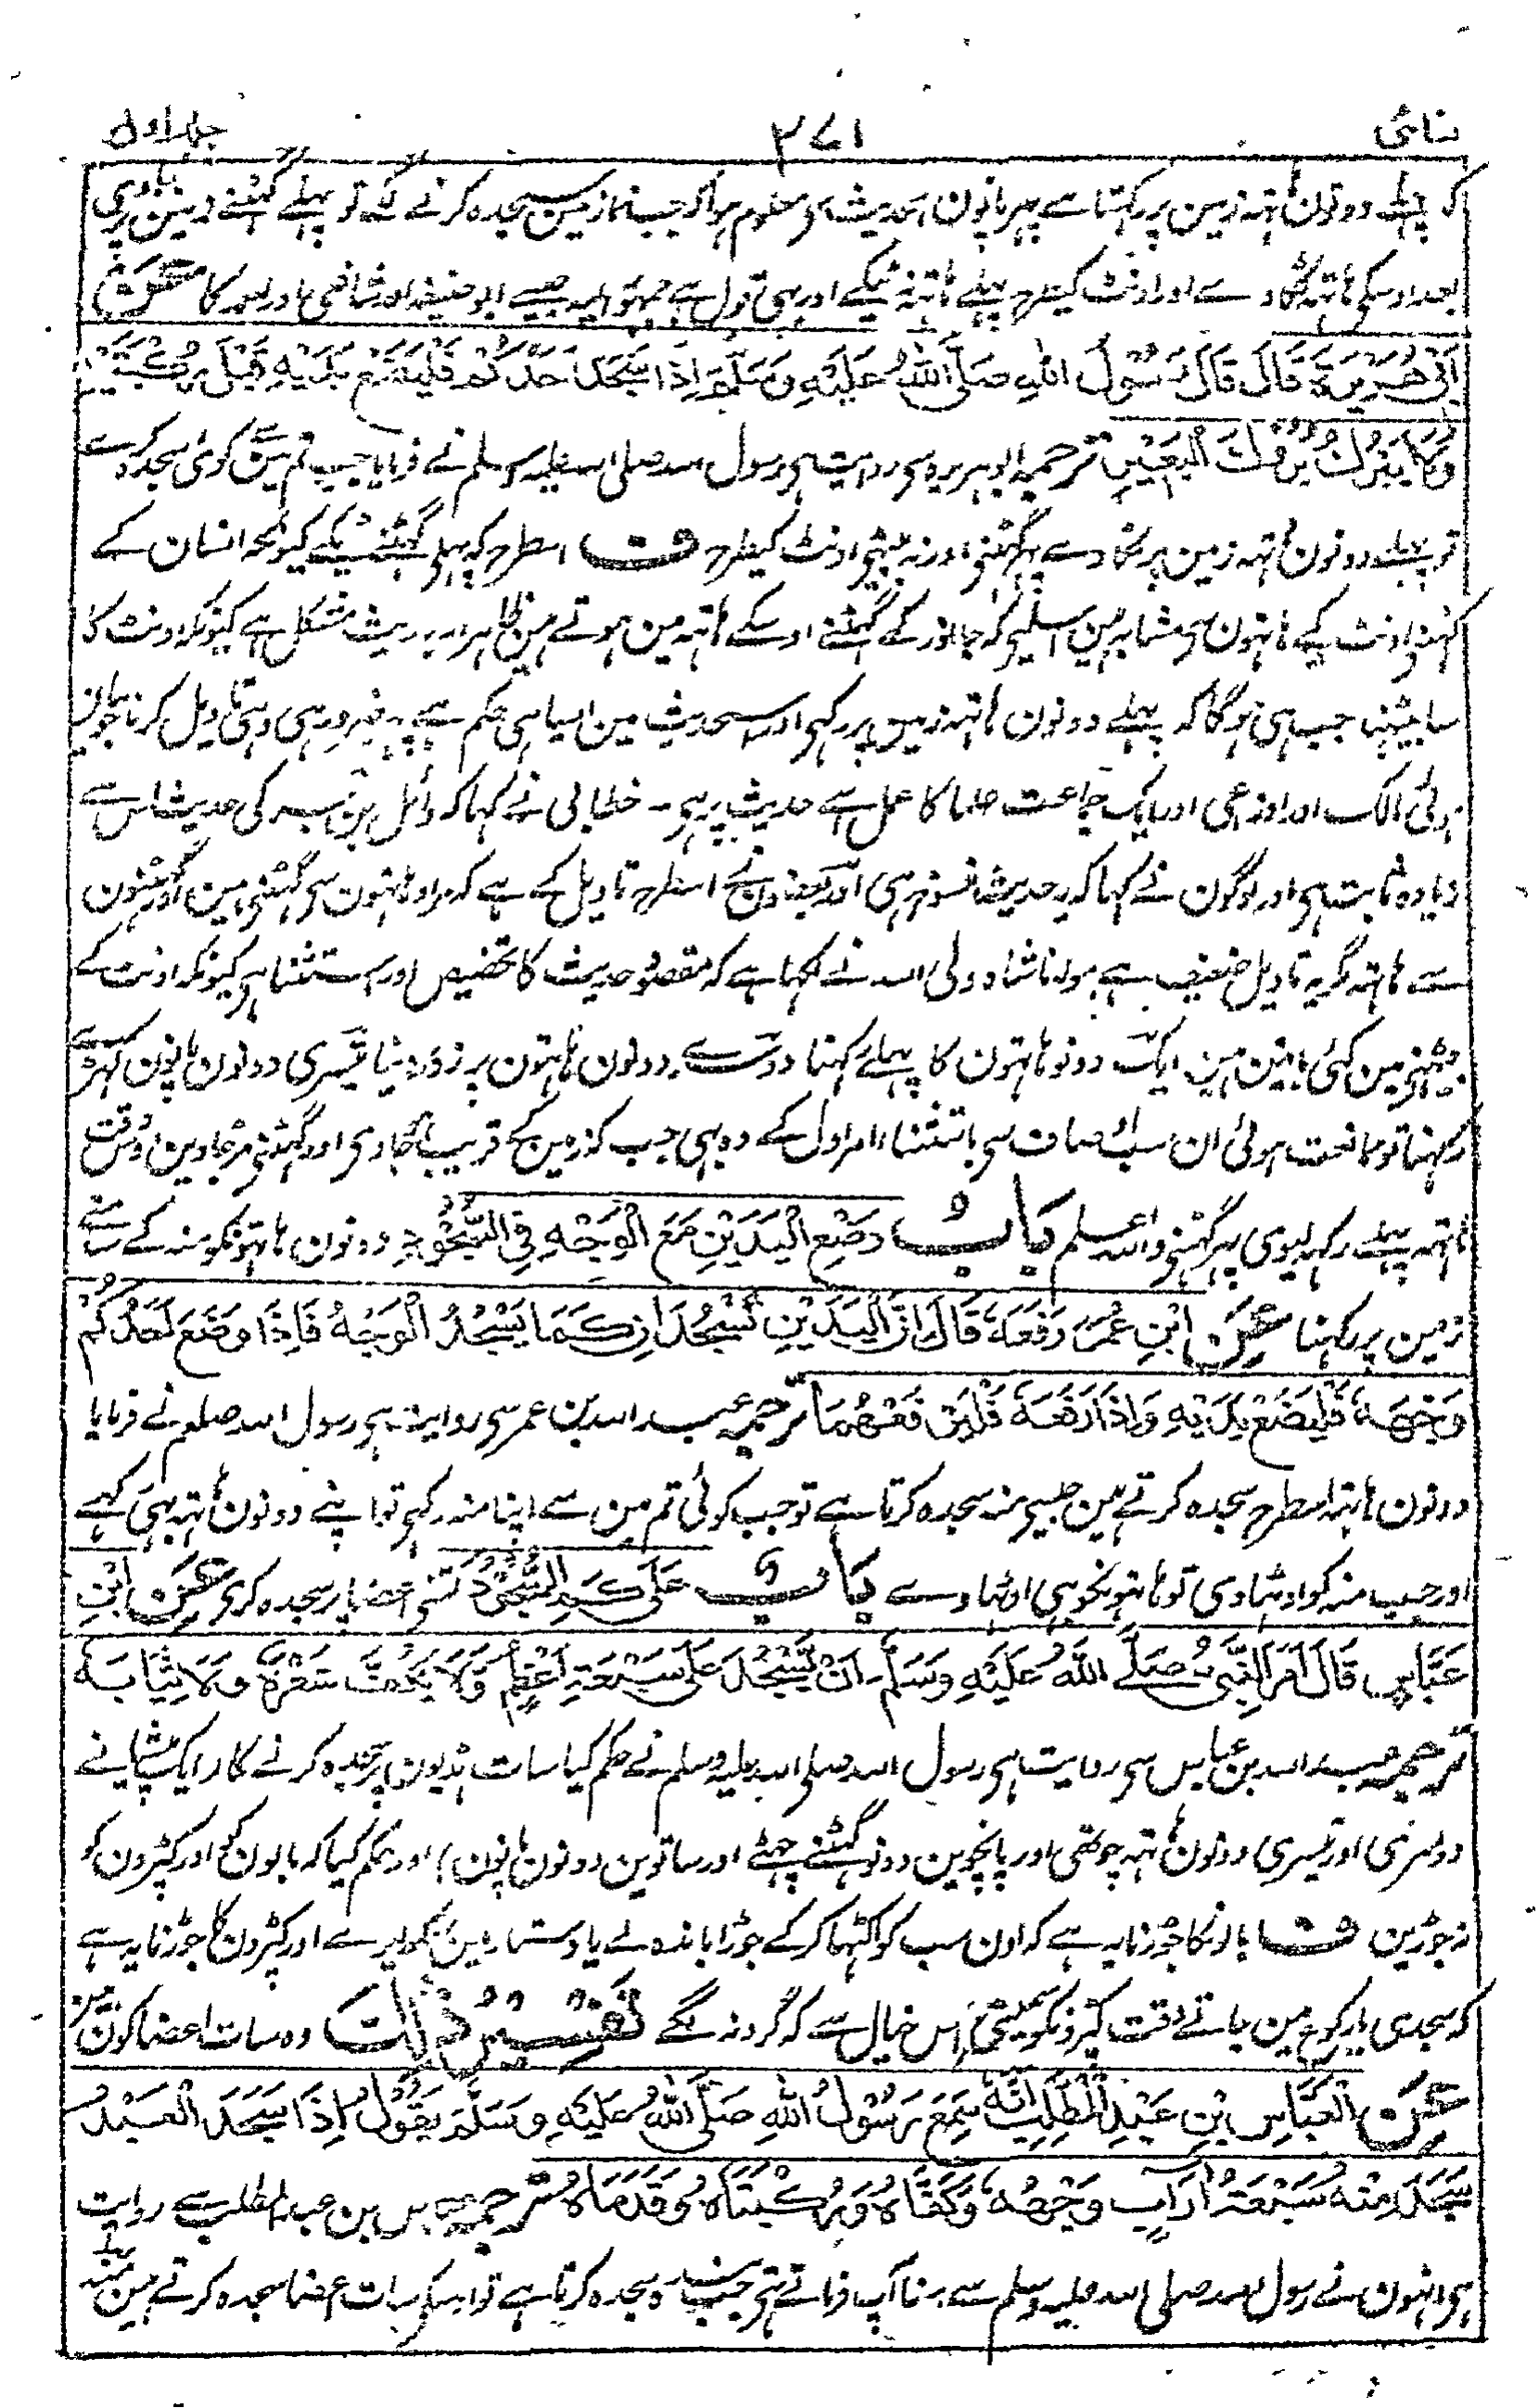 نسائی ۳۷۱ جلد اول
کہ پہلے دونون ہاتہ زمین پر رکہتا ہے پہر پانون اس حدیث سے معلوم ہوا کہ جب نماز مین سجدہ کرنے لگے تو پہلے گہٹنے زمین پر
بعد اوسکی ہاتہ لگاوے اور اونٹ کیطرح پہلے ہاتہ نہ ٹیکے اور یہی قول ہے جمہور ائمہ جیسے ابو حنیفہ اور شافعی اور احمد کا عَنْ
اَبِیْ هُرَیْرَةَ قَالَ قَالَ رَسُوْلُ اللهِ صَلَّى اللهُ عَلَیْهِ وَسَلَّمَ اِذَا سَجَدَ اَحَدُكُمْ فَلْیَضَعْ یَدَیْهِ قَبْلَ رُكْبَتَیْهِ
وَلَا یَبْرُكْ بُرُوْكَ الْبَعِیْرِ ترجمہ ابو ہریرہ سی روایت ہی رسول اللہ صلی اللہ علیہ وسلم نے فرمایا جب تم مین کوئی سجدہ کرے
تو پہلے دونون ہاتہ زمین پر لگاوے پہر گہٹنی اور نہ بیٹہی اونٹ کیطرح ف اسطرح کہ پہلی گہٹنے ٹیکے کیونکہ انسان کے
گہٹنے اونٹ کے ہاتہون سی مشابہ ہین اسلیے کہ جانور کے گہٹنے اوسکے ہاتہ مین ہوتے ہین ظاہرا یہ حدیث مشکل ہے کیونکہ اونٹ کا
سا بیٹہنا جب ہی ہوگا کہ پہلے دونون ہاتہ زمین پر رکہی اور اس حدیث مین ایسا ہی حکم ہے پہر ضرور ہی وہی تاویل کرنا جو بیان
ہوئی مالک اور اوزاعی اور ایک جماعت علما کا عمل اسے حدیث پر ہی ۔ خطابی نے کہا کہ وائل بن حجر کی حدیث اس سے
زیادہ ثابت ہی اور لوگون نے کہا کہ یہ حدیث منسوخ ہی اور بعضون نے اسطرح تاویل کے ہے کہ مراد ہاتہون سی گہٹنی ہین اور گہٹنون
سے ہاتہ مگر یہ تاویل ضعیف ہے مولانا شاہ ولی اللہ نے لکہا ہے کہ مقصود حدیث کا تخصیص اور استثنا ہی کیونکہ اونٹ کے
بیٹہنے مین کئی باتین ہین ایک دونو ہاتہون کا پہلے رکہنا دوسرے دونون ہاتہون پر زور دینا تیسری دونون پانون کہڑے
رکہنا تو ممانعت ہوئی ان سب اوصاف سی باستثناء امر اول کے وہ یہی جب کہ زمین کے قریب لگجاوی اور گہٹنی مڑجاوین اوسوقت
ہاتہ پہلے رکہہ لیوی پہر گہٹنی واللہ اعلم بَابُ وَضْعِ الْیَدَیْنِ مَعَ الْوَجْهِ فِی السُّجُوْدِ دونون ہاتہونکو منہ کے سامنے
زمین پر رکہنا عَنِ ابْنِ عُمَرَ رَفَعَهٗ قَالَ اِنَّ الْیَدَیْنِ تَسْجُدَانِ كَمَا یَسْجُدُ الْوَجْهُ فَاِذَا وَضَعَ اَحَدُكُمْ
وَجْهَهٗ فَلْیَضَعْ یَدَیْهِ وَاِذَا رَفَعَهٗ فَلْیَرْفَعْهُمَا ترجمہ عبد اللہ بن عمر سی روایت ہی رسول اللہ صلعم نے فرمایا
دونون ہاتہ اسطرح سجدہ کرتے ہین جیسی منہ سجدہ کرتا ہے تو جب کوئی تم مین سے اپنا منہ رکہی تو اپنے دونون ہاتہ بہی رکہے
اور جب منہ کو اوٹہاوی تو ہاتہونکو بہی اوٹہاوے بَابُ عَلٰى كَمِ السُّجُوْدُ کتنی اعضا پر سجدہ کری عَنِ ابْنِ
عَبَّاسٍ قَالَ اُمِرَ النَّبِیُّ صَلَّى اللهُ عَلَیْهِ وَسَلَّمَ اَنْ یَّسْجُدَ عَلٰى سَبْعَةِ اَعْظُمٍ وَّلَا یَكُفَّ شَعْرَهٗ وَلَا ثِیَابَهٗ
ترجمہ عبد اللہ بن عباس سی روایت ہی رسول اللہ صلی اللہ علیہ وسلم نے حکم کیا سات ہڈیون پر سجدہ کرنے کا (ایک پیشانے
دوسری اور تیسری دونون ہاتہ چوتہی اور پانچوین دونو گہٹنے چہٹے اور ساتوین دونون پانون) اور حکم کیا کہ بالون کو اور کپڑون کو
نہ جوڑین ف بالونکا جوڑنا یہ ہے کہ اون سب کو اکٹہا کرکے جوڑا باندہ لے یا دستار مین رکہہ لیوے اور کپڑون کا جوڑنا یہ ہے
کہ سجدی یا رکوع مین جاتے وقت کپڑونکو سمیٹی اس خیال سے کہ گرد نہ لگے تَفْسِیْرُ ذٰلِكَ وہ سات اعضا کون ہین
عَنِ الْعَبَّاسِ بْنِ عَبْدِ الْمُطَّلِبِ اَنَّهٗ سَمِعَ رَسُوْلَ اللهِ صَلَّى اللهُ عَلَیْهِ وَسَلَّمَ یَقُوْلُ اِذَا سَجَدَ الْعَبْدُ
سَجَدَ مِنْهُ سَبْعَةُ اٰرَابٍ وَجْهُهٗ وَكَفَّاهُ وَرُكْبَتَاهُ وَقَدَمَاهُ ترجمہ عباس بن عبد المطلب سے روایت
ہی انہون نے رسول اللہ صلی اللہ علیہ وسلم سے سنا آپ فرماتے تہی جب بندہ سجدہ کرتا ہے تو اسکے سات اعضا سجدہ کرتے ہین منہ